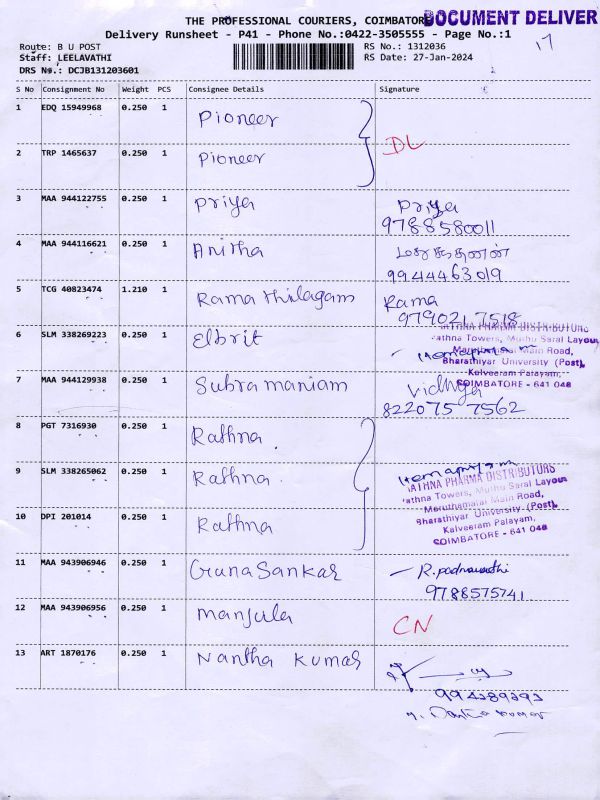 THE PROFESSIONAL COURIERS, COIMBATORE
DOCUMENT DELIVER
Delivery Runsheet - P41 - Phone No.:0422-3505555 - Page No.:1
17
Route: B U POST
RS No.: 1312036
Staff: LEELAVATHI
RS Date: 27-Jan-2024
DRS No.: DCJB131203601
S No Consignment No Weight PCS Consignee Details Signature
1 EDQ 15949968 0.250 1 Pioneer
DL
2 TRP 1465637 0.250 1 Pioneer
3 MAA 944122755 0.250 1 Priya Priya
9788580011
4 MAA 944116621 0.250 1 Anitha
9944463019
5 TCG 40823474 1.210 1 Rama thilagam Rama
9790217518
6 SLM 338269223 0.250 1 Elbrit
RATHNA PHARMA DISTRIBUTORS
Rathna Towers, Muthu Saral Layout
Maruthamalai Main Road,
Bharathiyar University (Post),
Kalveeram Palayam,
COIMBATORE - 641 046
7 MAA 944129938 0.250 1 Subramaniam Vidhya
8220757562
8 PGT 7316930 0.250 1 Rathna
9 SLM 338265062 0.250 1 Rathna
RATHNA PHARMA DISTRIBUTORS
Rathna Towers, Muthu Saral Layout
Maruthamalai Main Road,
Bharathiyar University (Post),
Kalveeram Palayam,
COIMBATORE - 641 046
10 DPI 201014 0.250 1 Rathna
11 MAA 943906946 0.250 1 Guna Sankar R. padmavathi
9788575741
12 MAA 943906956 0.250 1 Manjula CN
13 ART 1870176 0.250 1 Nantha Kumar
994289293